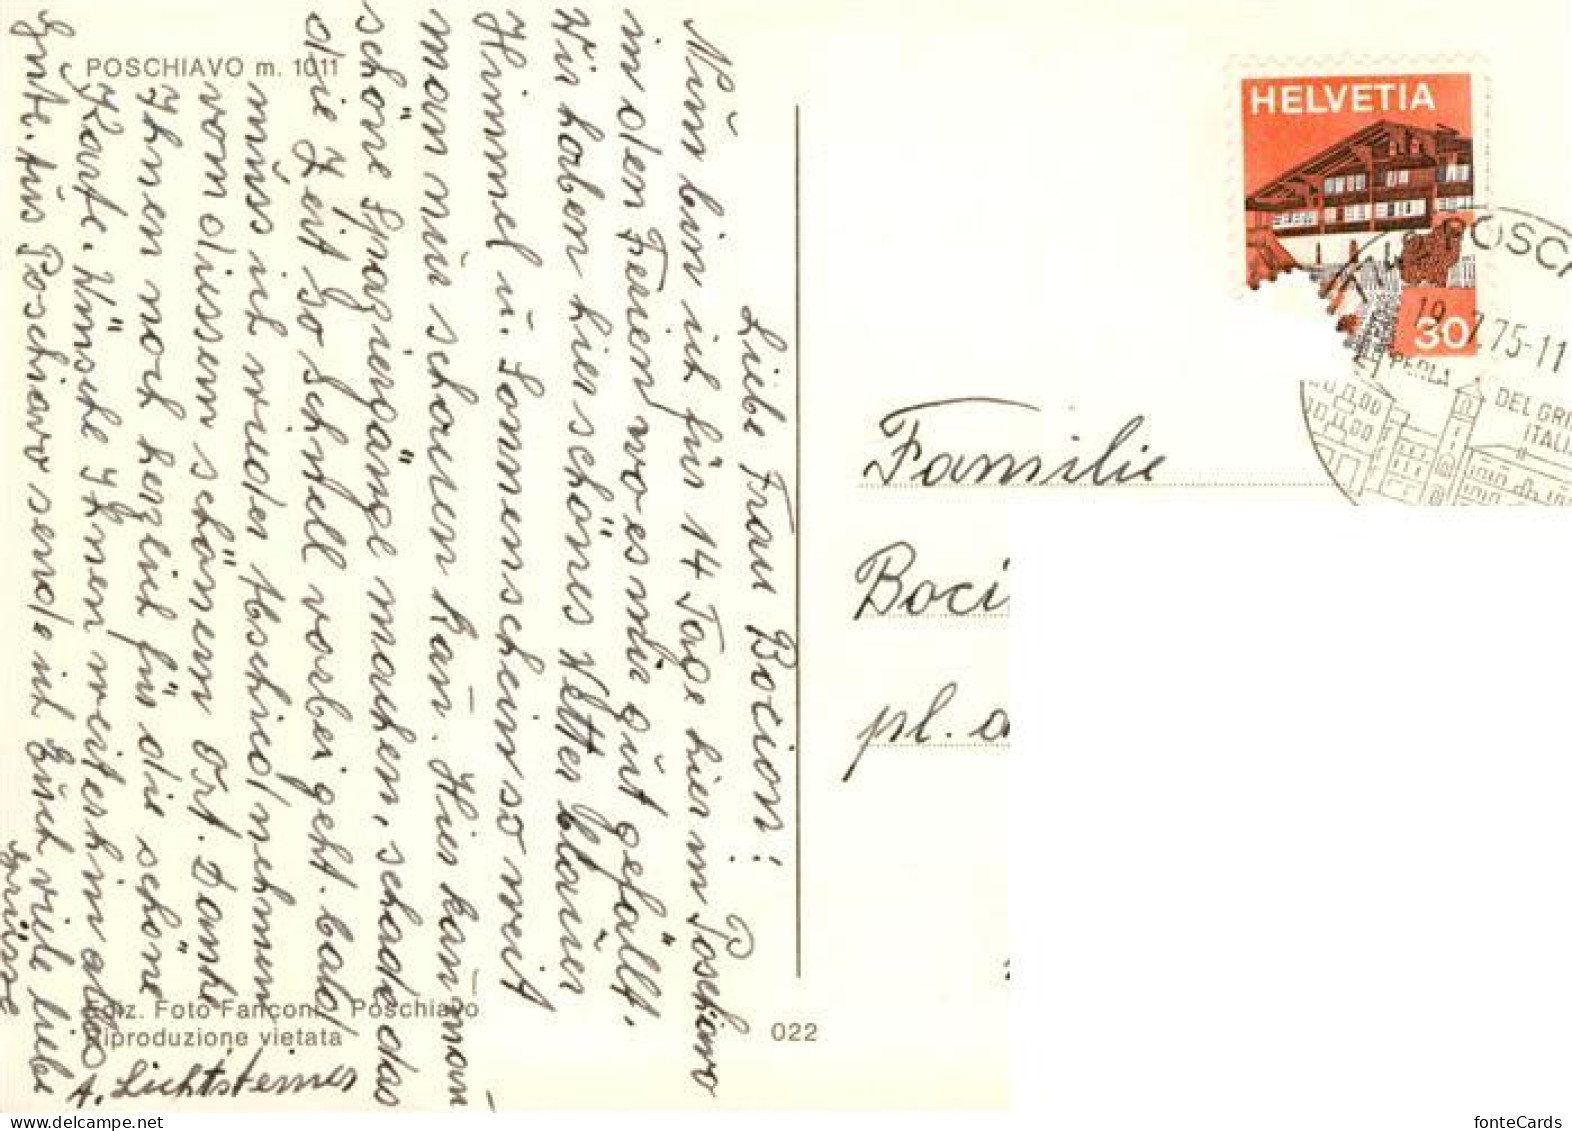 POSCHIAVO m. 1011
Liebe Frau Bocion!
P.
Nun bin ich für 14 Tage hier in Poschiavo
in den Ferien wo es mir gut gefällt.
Wir haben hier schönes Wetter blauer
Himmel u. Sonnenschein so weit
man nur schauen kan̄. Hier kan̄ man
schöne Spaziergänge machen, schade das
die Zeit so schnell vorbei geht. bald
muss ich wieder Abschied nehmen
von diesem schönem Ort. Danke
Ihnen noch herzlich für die schöne
Karte. Wünsche Ihnen weiterhin alles
Gute. Aus Poschiavo sende ich Euch viele liebe
Grüsse
A. Lichtsteiner
Ediz. Foto Fanconi - Poschiavo
Riproduzione vietata
022
HELVETIA
30
POSCH
19. 7.75-11
PERLA
DEL GRI
ITALI
Familie
Boci
pl. d
fonteCards